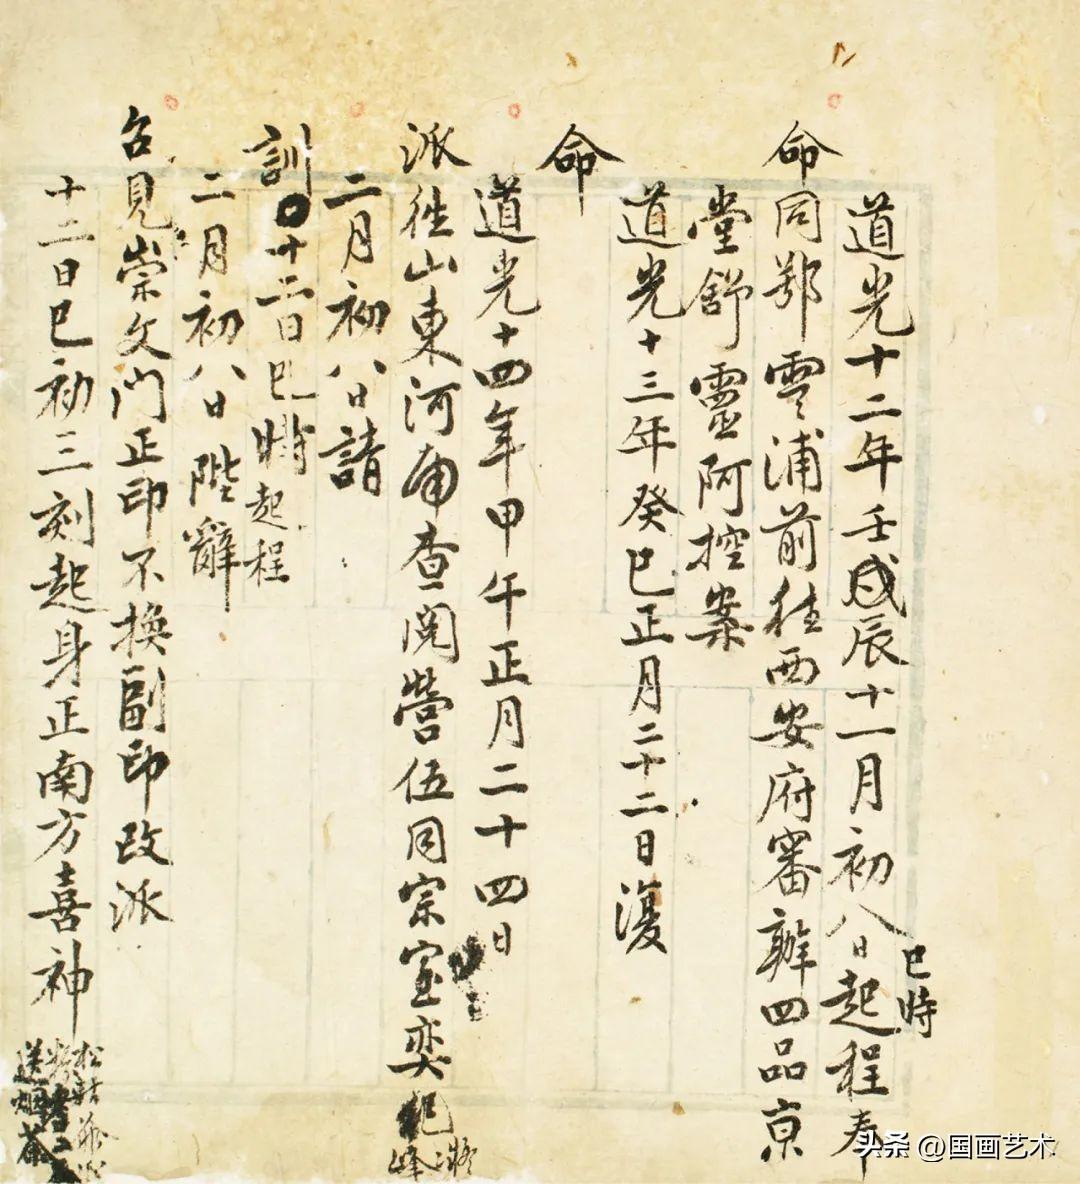 道光十二年壬戌辰十一月初八日巳時起程奉
命同鄂雲浦前往西安府審辦四品京
堂舒靈阿控案
道光十三年癸巳正月二十二日復
命
道光十四年甲午正月二十四日
派往山東河南查閱營伍同宗室奕紀
二月初八日請
訓十二日巳時起程
二月初八日陛辭
召見崇文門正印不換副印改派
十二日巳初三刻起身正南方喜神
头条 @国画艺术